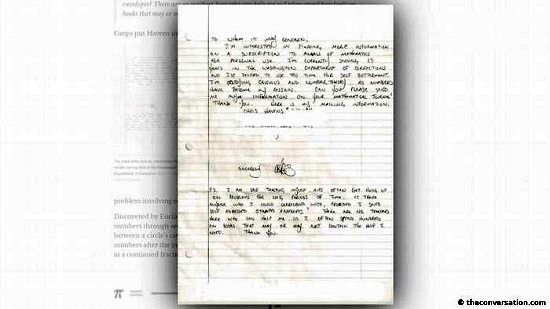 developed! There
books that may o
Cargo put Havens in
problem involving c
Discovered by Eucli
numbers through se
between a circle's c
numbers after the in
as a continued fracti
π = —
TO WHOM IT MAY CONCERN,
I'M INTERESTED IN FINDING MORE INFORMATION
ON A SUBSCRIPTION TO ANNALS OF MATHEMATICS
FOR PERSONAL USE. I'M CURRENTLY SERVING 25
YEARS IN THE WASHINGTON DEPARTMENT OF CORRECTIONS
AND I'VE DECIDED TO USE THIS TIME FOR SELF BETTERMENT.
I'M STUDYING CALCULUS AND NUMBER THEORY, AS NUMBERS
HAVE BECOME MY MISSION. CAN YOU PLEASE SEND
ME ANY INFORMATION ON YOUR MATHEMATICAL JOURNAL?
THANK YOU. HERE IS MY MAILING INFORMATION,
CHRIS HAVENS
SINCERELY
P.S. I AM SELF TEACHING MYSELF AND OFTEN GET HUNG UP
ON PROBLEMS FOR LONG PERIODS OF TIME. IS THERE
ANYONE WHO I COULD CORRESPOND WITH, PROVIDED I SEND
SELF ADDRESSED STAMPED ENVELOPES? THERE ARE NO TEACHERS
HERE WHO CAN HELP ME SO I OFTEN SPEND HUNDREDS
ON BOOKS THAT MAY OR MAY NOT CONTAIN THE HELP I
NEED. THANK YOU.
© theconversation.com